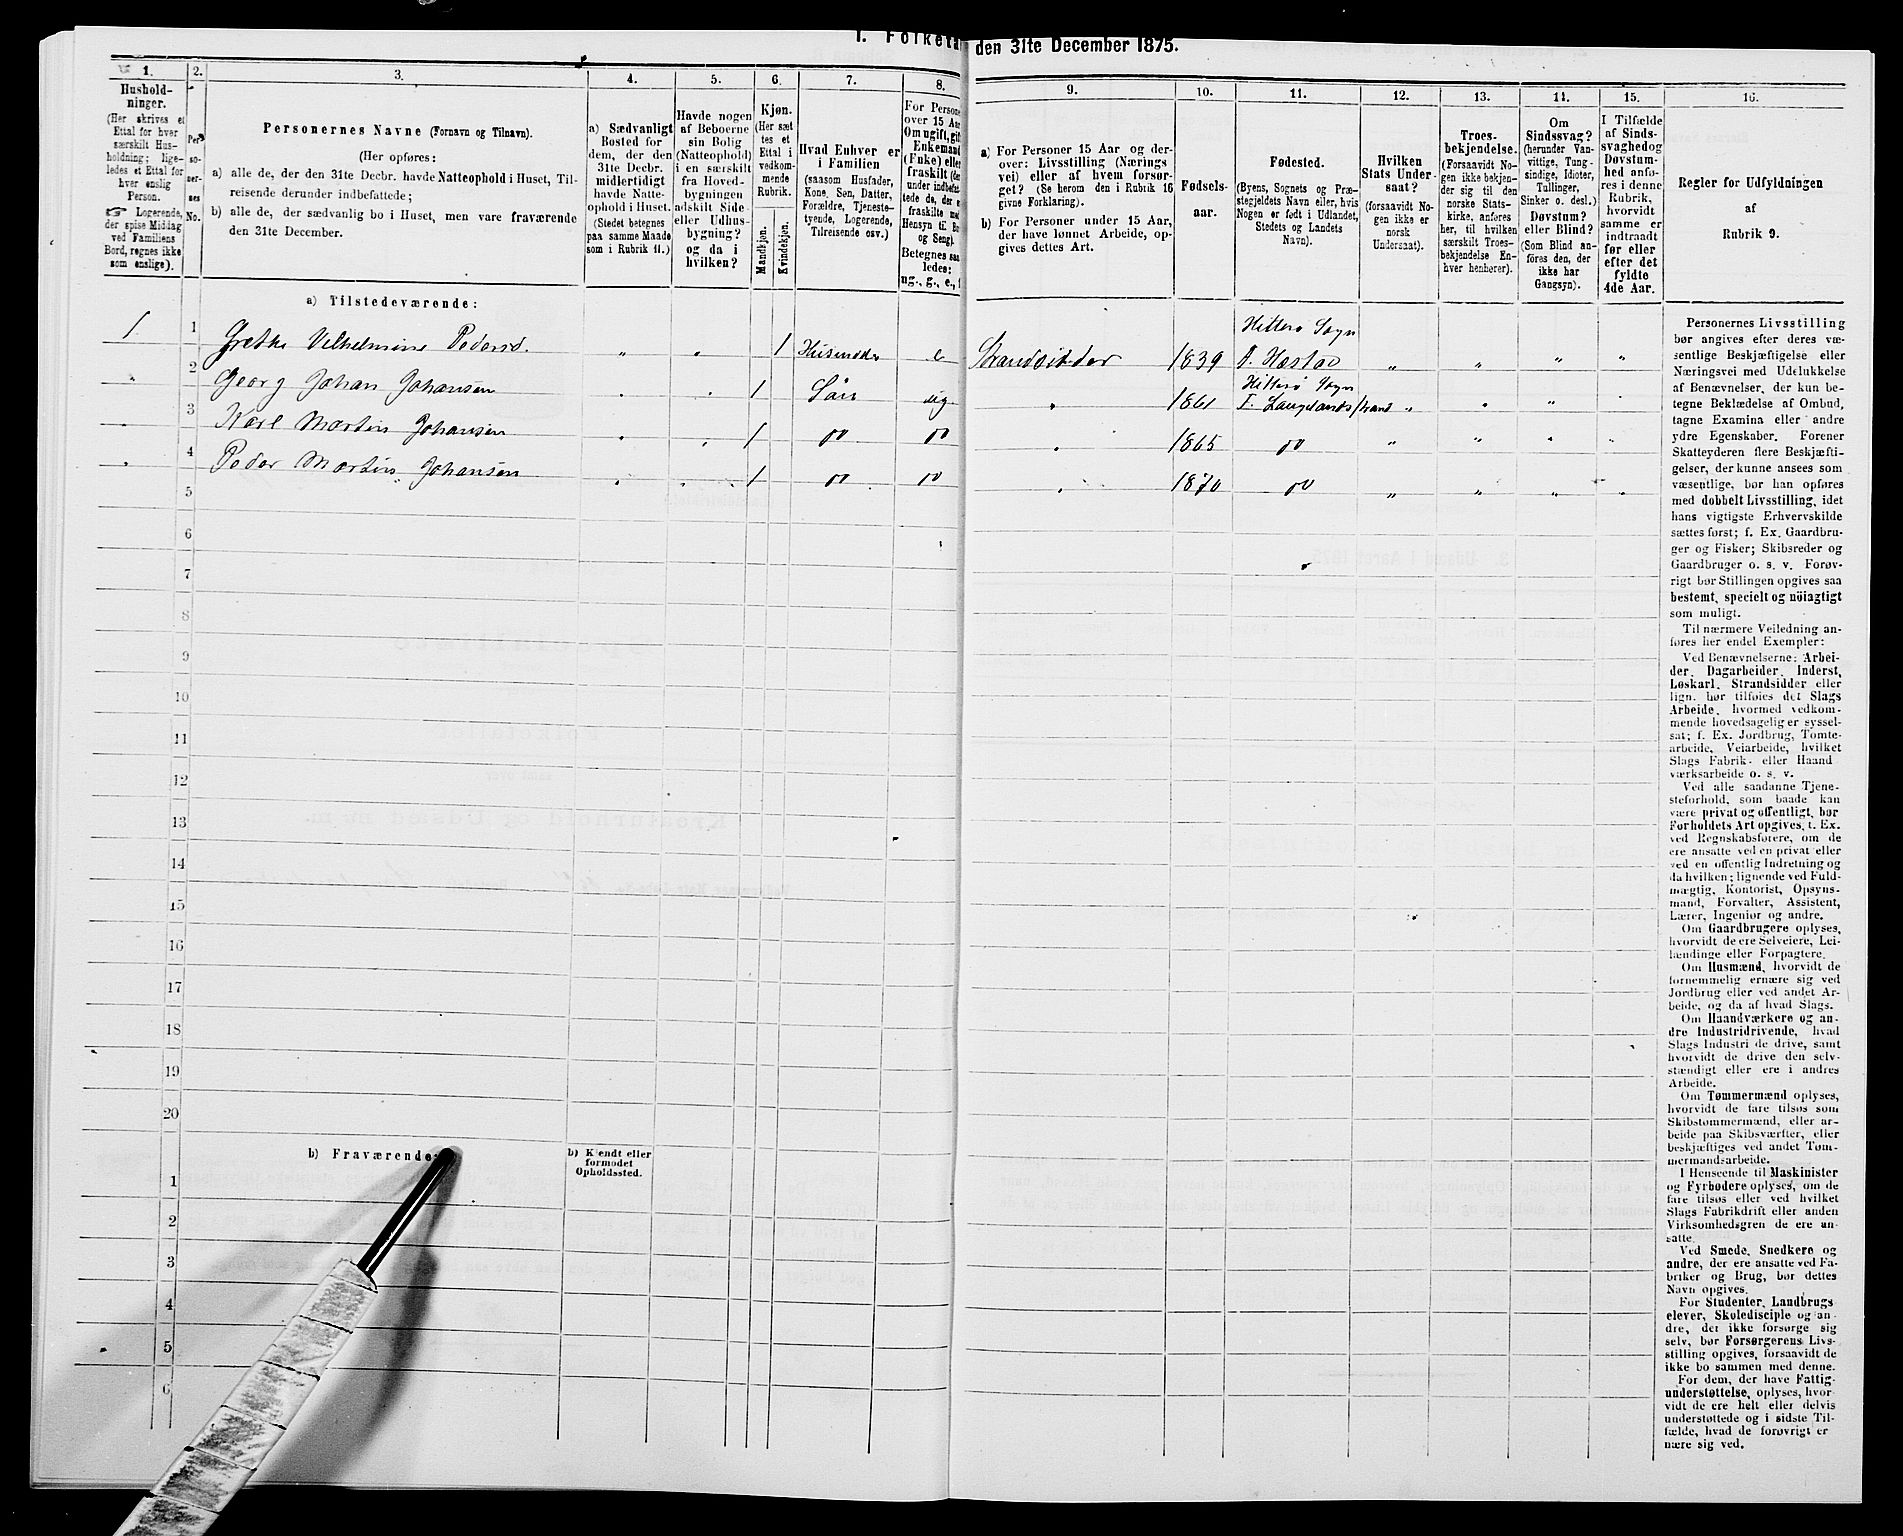 1. Folketa
den 31te December 1875.
1.
2.
3.
4.
5.
6.
7.
8.
9.
10.
11.
12.
13.
14.
15.
16.
Hushold-
ninger.
(Her skrives et
Ettal for hver
særskilt Hus-
holdning; lige-
ledes et Ettal for
hver enslig
Person.
☞ Logerende,
der spise Middag
ved Familiens
Bord, regnes ikke
som enslige).
Per-
so-
ner-
nes
No.
Personernes Navne (Fornavn og Tilnavn).
(Her opføres:
a) alle de, der den 31te Decbr. havde Natteophold i Huset, Til-
reisende derunder indbefattede;
b) alle de, der sædvanlig bo i Huset, men vare fraværende
den 31te December.
a) Sædvanligt
Bosted for
dem, der den
31te Decbr.
midlertidigt
havde Natte-
ophold i Huset.
(Stedet betegnes
paa samme Maade
som i Rubrik 11.)
Havde nogen
af Beboerne
sin Bolig
(Natteophold)
i en særskilt
fra Hoved-
bygningen
adskilt Side-
eller Udhus-
bygning?
og da i
hvilken?
Kjøn.
(Her sæt
tes et
Ettal i
vedkom-
mende
Rubrik.
Mandkjøn.
Kvindekjøn.
Hvad Enhver er
i Familien
(saasom Husfader,
Kone, Søn, Datter,
Forældre, Tjeneste-
tyende, Logerende,
Tilreisende osv.)
For Persone
over 15 Aa
Om ugift, gif
Enkemand
(Enke) elle
fraskilt (de
under indbefat
tede de, der e
fraskilte me
Hensyn til Bo
og Seng).
Betegnes saa
ledes:
ug., g., e., f
a) For Personer 15 Aar og der-
over: Livsstilling (Nærings
vei) eller af hvem forsør-
get? (Se herom den i Rubrik 16
givne Forklaring).
b) For Personer under 15 Aar,
der have lønnet Arbeide, op-
gives dettes Art.
Fødsels-
aar.
Fødested.
(Byens, Sognets og Præ-
stegjeldets Navn eller, hvis
Nogen er født i Udlandet,
Stedets og Landets
Navn).
Hvilken
Stats Under-
saat?
(forsaavidt No-
gen ikke er
norsk
Undersaat).
Troes-
bekjendelse.
(Forsaavidt No-
gen ikke bekjen-
der sig til den
norske Stats-
kirke, anføres
her, til hvilken
særskilt Troes-
bekjendelse En-
hver henhører).
Om
Sindssvag?
(herunder Van-
vittige, Tung-
sindige, Idioter,
Tullinger,
Sinker o. desl.)
Døvstum?
eller Blind?
(Som Blind an-
føres den, der
ikke har
Gangsyn).
I Tilfælde
af Sinds-
svaghed og
Døvstum-
hed anfø-
res i denne
Rubrik,
hvorvidt
samme er
indtraadt
før eller
efter det
fyldte
4de Aar.
Regler for Udfyldningen
af
Rubrik 9.
a) Tilstedeværende:
1 1 Grethe Vilhelmine Pedersd. " " 1 Husmoder e Strandsidder 1839 Hitterø Sogn
" 2 Georg Johan Johansen " " 1 Søn ug " 1861 Hitterø Sogn
" 3 Karl Martin Johansen " " 1 do do " 1865 do " " " "
" 4 Peder Martin Johansen " " 1 do do " 1870 do " " " "
5
6
7
8
9
10
11
12
13
14
15
16
17
18
19
20
b) Fraværende:
b) Kjendt eller
formodet
Opholdssted.
1
2
3
4
5
6
Personernes Livsstilling
bør angives efter deres væ-
sentlige Beskjæftigelse eller
Næringsvei med Udelukkelse
af Benævnelser, der kun be-
tegne Beklædelse af Ombud,
tagne Examina eller andre
ydre Egenskaber. Forener
Skatteyderen flere Beskjæfti-
gelser, der kunne ansees som
væsentlige, bør han opføres
med dobbelt Livsstilling, idet
hans vigtigste Erhvervskilde
sættes først; f. Ex. Gaardbru-
ger og Fisker; Skibsreder og
Gaardbruger o. s. v. Forøv-
rigt bør Stillingen opgives saa
bestemt, specielt og nöiagtigt
som muligt.
Til nærmere Veiledning an-
føres her endel Exempler:
Ved Benævnelserne: Arbei-
der, Dagarbeider, Inderst,
Løskarl, Strandsidder eller
lign. bør tilføies det Slags
Arbeide, hvormed vedkom-
mende hovedsagelig er syssel-
sat; f. Ex. Jordbrug, Tomte-
arbeide, Veiarbeide, hvilket
Slags Fabrik- eller Haand
værksarbeide o. s. v.
Ved alle saadanne Tjene-
steforhold, som baade kan
være privat og offentligt, bør
Forholdets Art opgives, t. Ex.
ved Regnskabsførere, om de
ere ansatte ved en privat eller
ved en offentlig Indretning og
da hvilken; lignende ved Fuld-
mægtig, Kontorist, Opsyns-
mand, Forvalter, Assistent,
Lærer, Ingeniør og andre.
Om Gaardbrugere oplyses,
hvorvidt de ere Selveiere, Lei-
lændinge eller Forpagtere.
Om Husmænd, hvorvidt de
fornemmelig ernære sig ved
Jordbrug eller ved andet Ar-
beide, og da af hvad Slags.
Om Haandværkere og an-
dre Industridrivende, hvad
Slags Industri de drive, samt
hvorvidt de drive den selv-
stændigt eller ere i andres
Arbeide.
Om Tømmermænd oplyses,
hvorvidt de fare tilsøs som
Skibstømmermænd, eller ar-
beide paa Skibsværfter, eller
beskjæftiges ved andet Tøm-
mermandsarbeide.
I Henseende til Maskinister
og Fyrbødere oplyses, om de
fare tilsøs eller ved hvilket
Slags Fabrikdrift eller anden
Virksomhedsgren de ere an-
satte.
Ved Smede, Snedkere og
andre, der ere ansatte ved Fa-
briker og Brug, bør dettes
Navn opgives.
For Studenter, Landbrugs
elever, Skoledisciple og an-
dre, der ikke forsørge sig
selv, bør Forsørgerens Livs-
stilling opgives, forsaavidt de
ikke bo sammen med denne.
For dem, der have Fattig-
understøttelse, oplyses, hvor-
vidt de ere helt eller delvis
understøttede og i sidste Til-
fælde, hvad de forøvrigt er
nære sig ved.